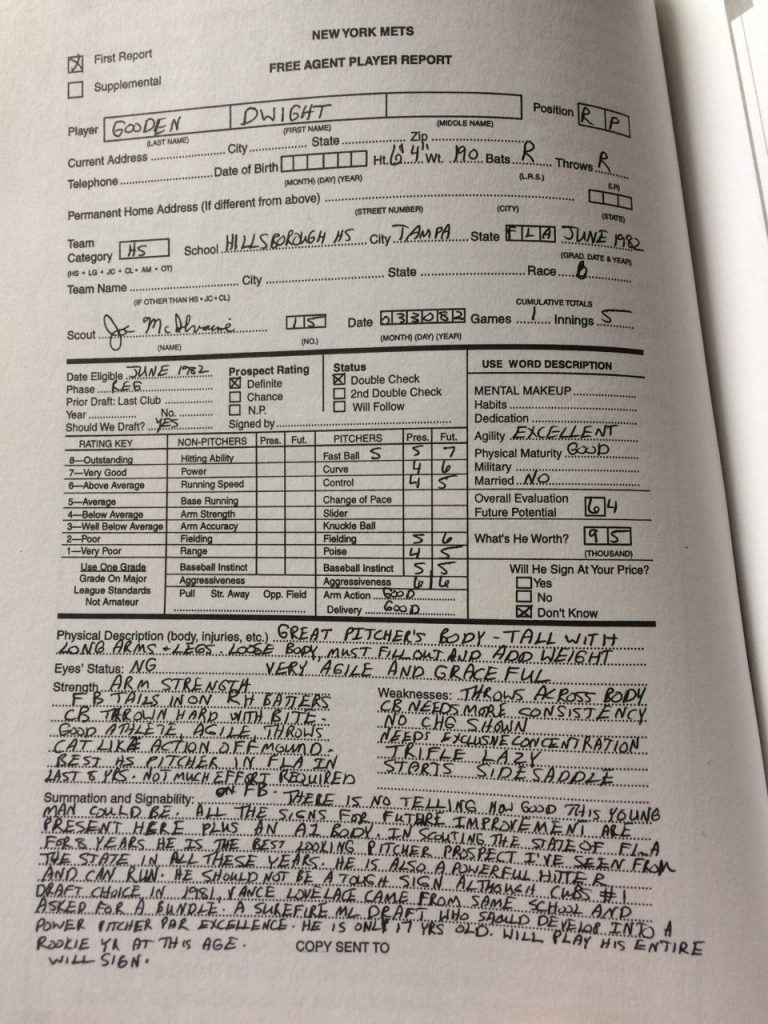 NEW YORK METS
FREE AGENT PLAYER REPORT
First Report
Supplemental
Player GOODEN DWIGHT Position R P
(LAST NAME) (FIRST NAME) (MIDDLE NAME)
Current Address City State Zip
Telephone Date of Birth Ht. 6'4" Wt. 190 Bats R Throws R
(MONTH) (DAY) (YEAR) (L.R.S.) (LR)
Permanent Home Address (If different from above)
(STREET NUMBER) (CITY) (STATE)
Team Category HS School HILLSBOROUGH HS City TAMPA State FLA JUNE 1982
(HS • LG • JC • CL • AM • OT) (GRAD. DATE & YEAR)
Team Name City State Race B
(IF OTHER THAN HS • JC • CL) CUMULATIVE TOTALS
Scout Joe McIlvaine 15 Date 033082 Games 1 Innings 5
(NAME) (NO.) (MONTH) (DAY) (YEAR)
Date Eligible JUNE 1982
Phase REG
Prior Draft: Last Club
Year No.
Should We Draft? YES
Prospect Rating
Definite
Chance
N.P.
Signed by
Status
Double Check
2nd Double Check
Will Follow
RATING KEY NON-PITCHERS Pres. Fut. PITCHERS Pres. Fut.
8—Outstanding Hitting Ability Fast Ball S 5 7
7—Very Good Power Curve 4 6
6—Above Average Running Speed Control 4 5
5—Average Base Running Change of Pace
4—Below Average Arm Strength Slider
3—Well Below Average Arm Accuracy Knuckle Ball
2—Poor Fielding Fielding 5 6
1—Very Poor Range Poise 4 5
Use One Grade Baseball Instinct Baseball Instinct 5 5
Grade On Major Aggressiveness Aggressiveness 6 6
League Standards Pull Str. Away Opp. Field Arm Action GOOD
Not Amateur Delivery GOOD
USE WORD DESCRIPTION
MENTAL MAKEUP
Habits
Dedication
Agility EXCELLENT
Physical Maturity GOOD
Military
Married NO
Overall Evaluation
Future Potential 64
What's He Worth? 95
(THOUSAND)
Will He Sign At Your Price?
Yes
No
Don't Know
Physical Description (body, injuries, etc.) GREAT PITCHER'S BODY - TALL WITH
LONG ARMS + LEGS. LOOSE BODY, MUST FILL OUT AND ADD WEIGHT
Eyes' Status: NG VERY AGILE AND GRACEFUL
Strength ARM STRENGTH
FB TAILS IN ON RH BATTERS
CB THROWN HARD WITH BITE.
GOOD ATHLETE, AGILE, THROWS
CAT LIKE ACTION OFF MOUND.
BEST HS PITCHER IN FLA IN
LAST 8 YRS. NOT MUCH EFFORT REQUIRED
ON FB.
Weaknesses: THROWS ACROSS BODY
CB NEEDS MORE CONSISTENCY
NO CHG SHOWN
NEEDS EXCLUSIVE CONCENTRATION
TRIFLE LAZY
STARTS SIDESADDLE
Summation and Signability: THERE IS NO TELLING HOW GOOD THIS YOUNG
MAN COULD BE. ALL THE SIGNS FOR FUTURE IMPROVEMENT ARE
PRESENT HERE PLUS AN A1 BODY. IN SCOUTING THE STATE OF FLA
FOR 8 YEARS HE IS THE BEST LOOKING PITCHER PROSPECT I'VE SEEN FROM
THE STATE IN ALL THESE YEARS. HE IS ALSO A POWERFUL HITTER
AND CAN RUN. HE SHOULD NOT BE A TOUGH SIGN ALTHOUGH CUBS #1
DRAFT CHOICE IN 1981, VANCE LOVELACE CAME FROM SAME SCHOOL AND
ASKED FOR A BUNDLE. A SUREFIRE ML DRAFT WHO SHOULD DEVELOP INTO A
POWER PITCHER PAR EXCELLENCE. HE IS ONLY 17 YRS OLD. WILL PLAY HIS ENTIRE
ROOKIE YR AT THIS AGE. COPY SENT TO
WILL SIGN.